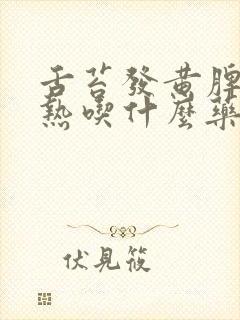 舌苔發黃脾
熱喫什麼藥
伏見筱